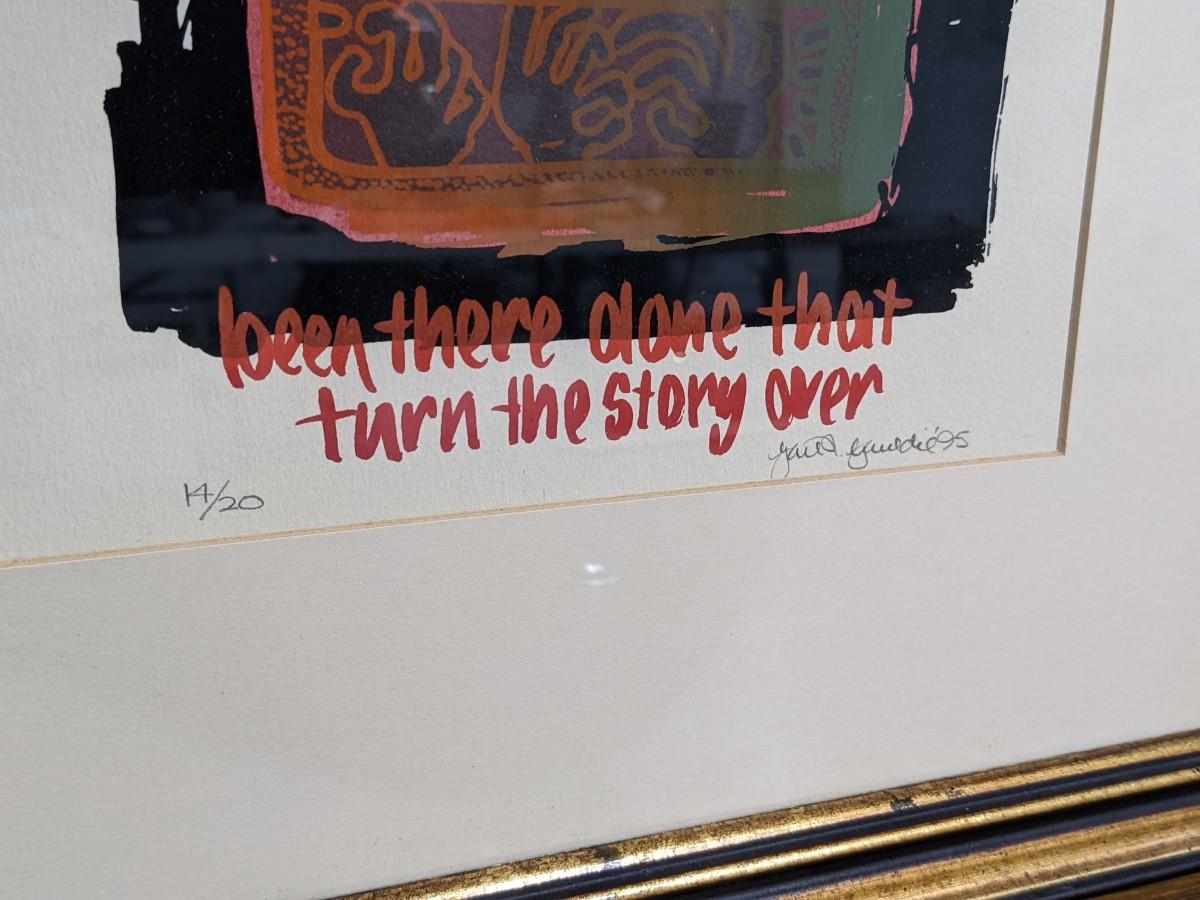 been there alone that
turn the story over
'95
14/20